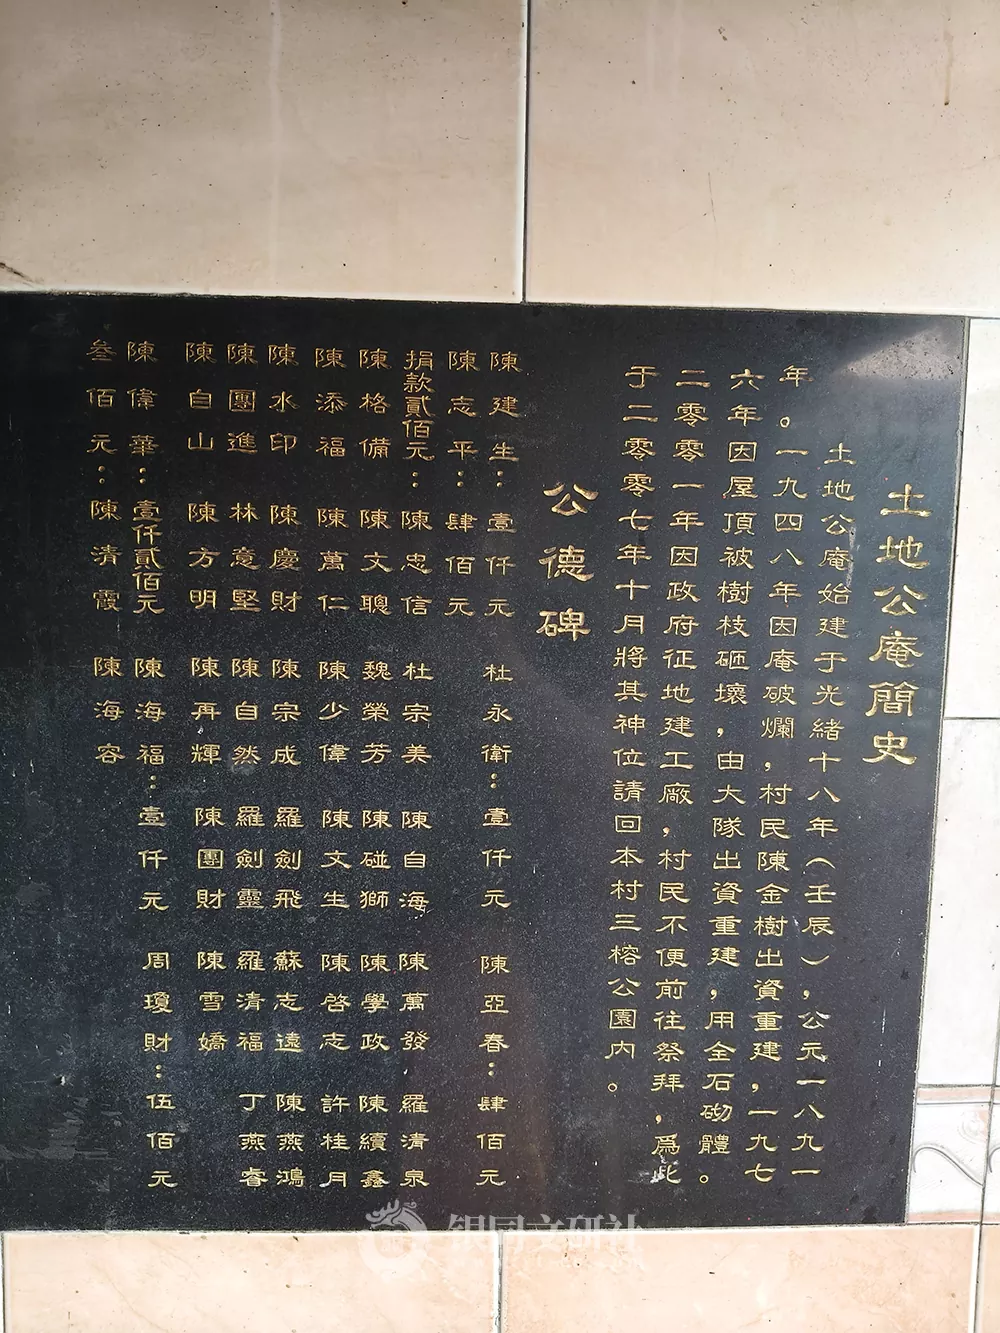 土地公庵簡史
土地公庵始建于光緒十八年(壬辰),公元一八九一
年。一九四八年因庵破爛,村民陳金樹出資重建,一九七
六年因屋頂被樹枝砸壞,由大隊出資重建,用全石砌體。
二零零一年因政府征地建工廠,村民不便前往祭拜,爲此
于二零零七年十月將其神位請回本村三榕公園内。
公德碑
陳建生:壹仟元 杜永衛:壹仟元 陳亞春:肆佰元
陳志平:肆佰元
捐款貳佰元:陳忠信 杜宗美 陳自海 陳萬發 羅清泉
陳格備 陳文聰 魏榮芳 陳碰獅 陳學政 陳續鑫
陳添福 陳萬仁 陳少偉 陳文生 陳啓志 許桂月
陳水印 陳慶財 陳宗成 羅劍飛 蘇志遠 陳燕鴻
陳團進 林意堅 陳自然 羅劍靈 羅清福 丁燕睿
陳自山 陳方明 陳再輝 陳團財 陳雪嬌
陳偉華:壹仟貳佰元 陳海福:壹仟元 周瓊財:伍佰元
叁佰元:陳清霞 陳海容
银同文研社